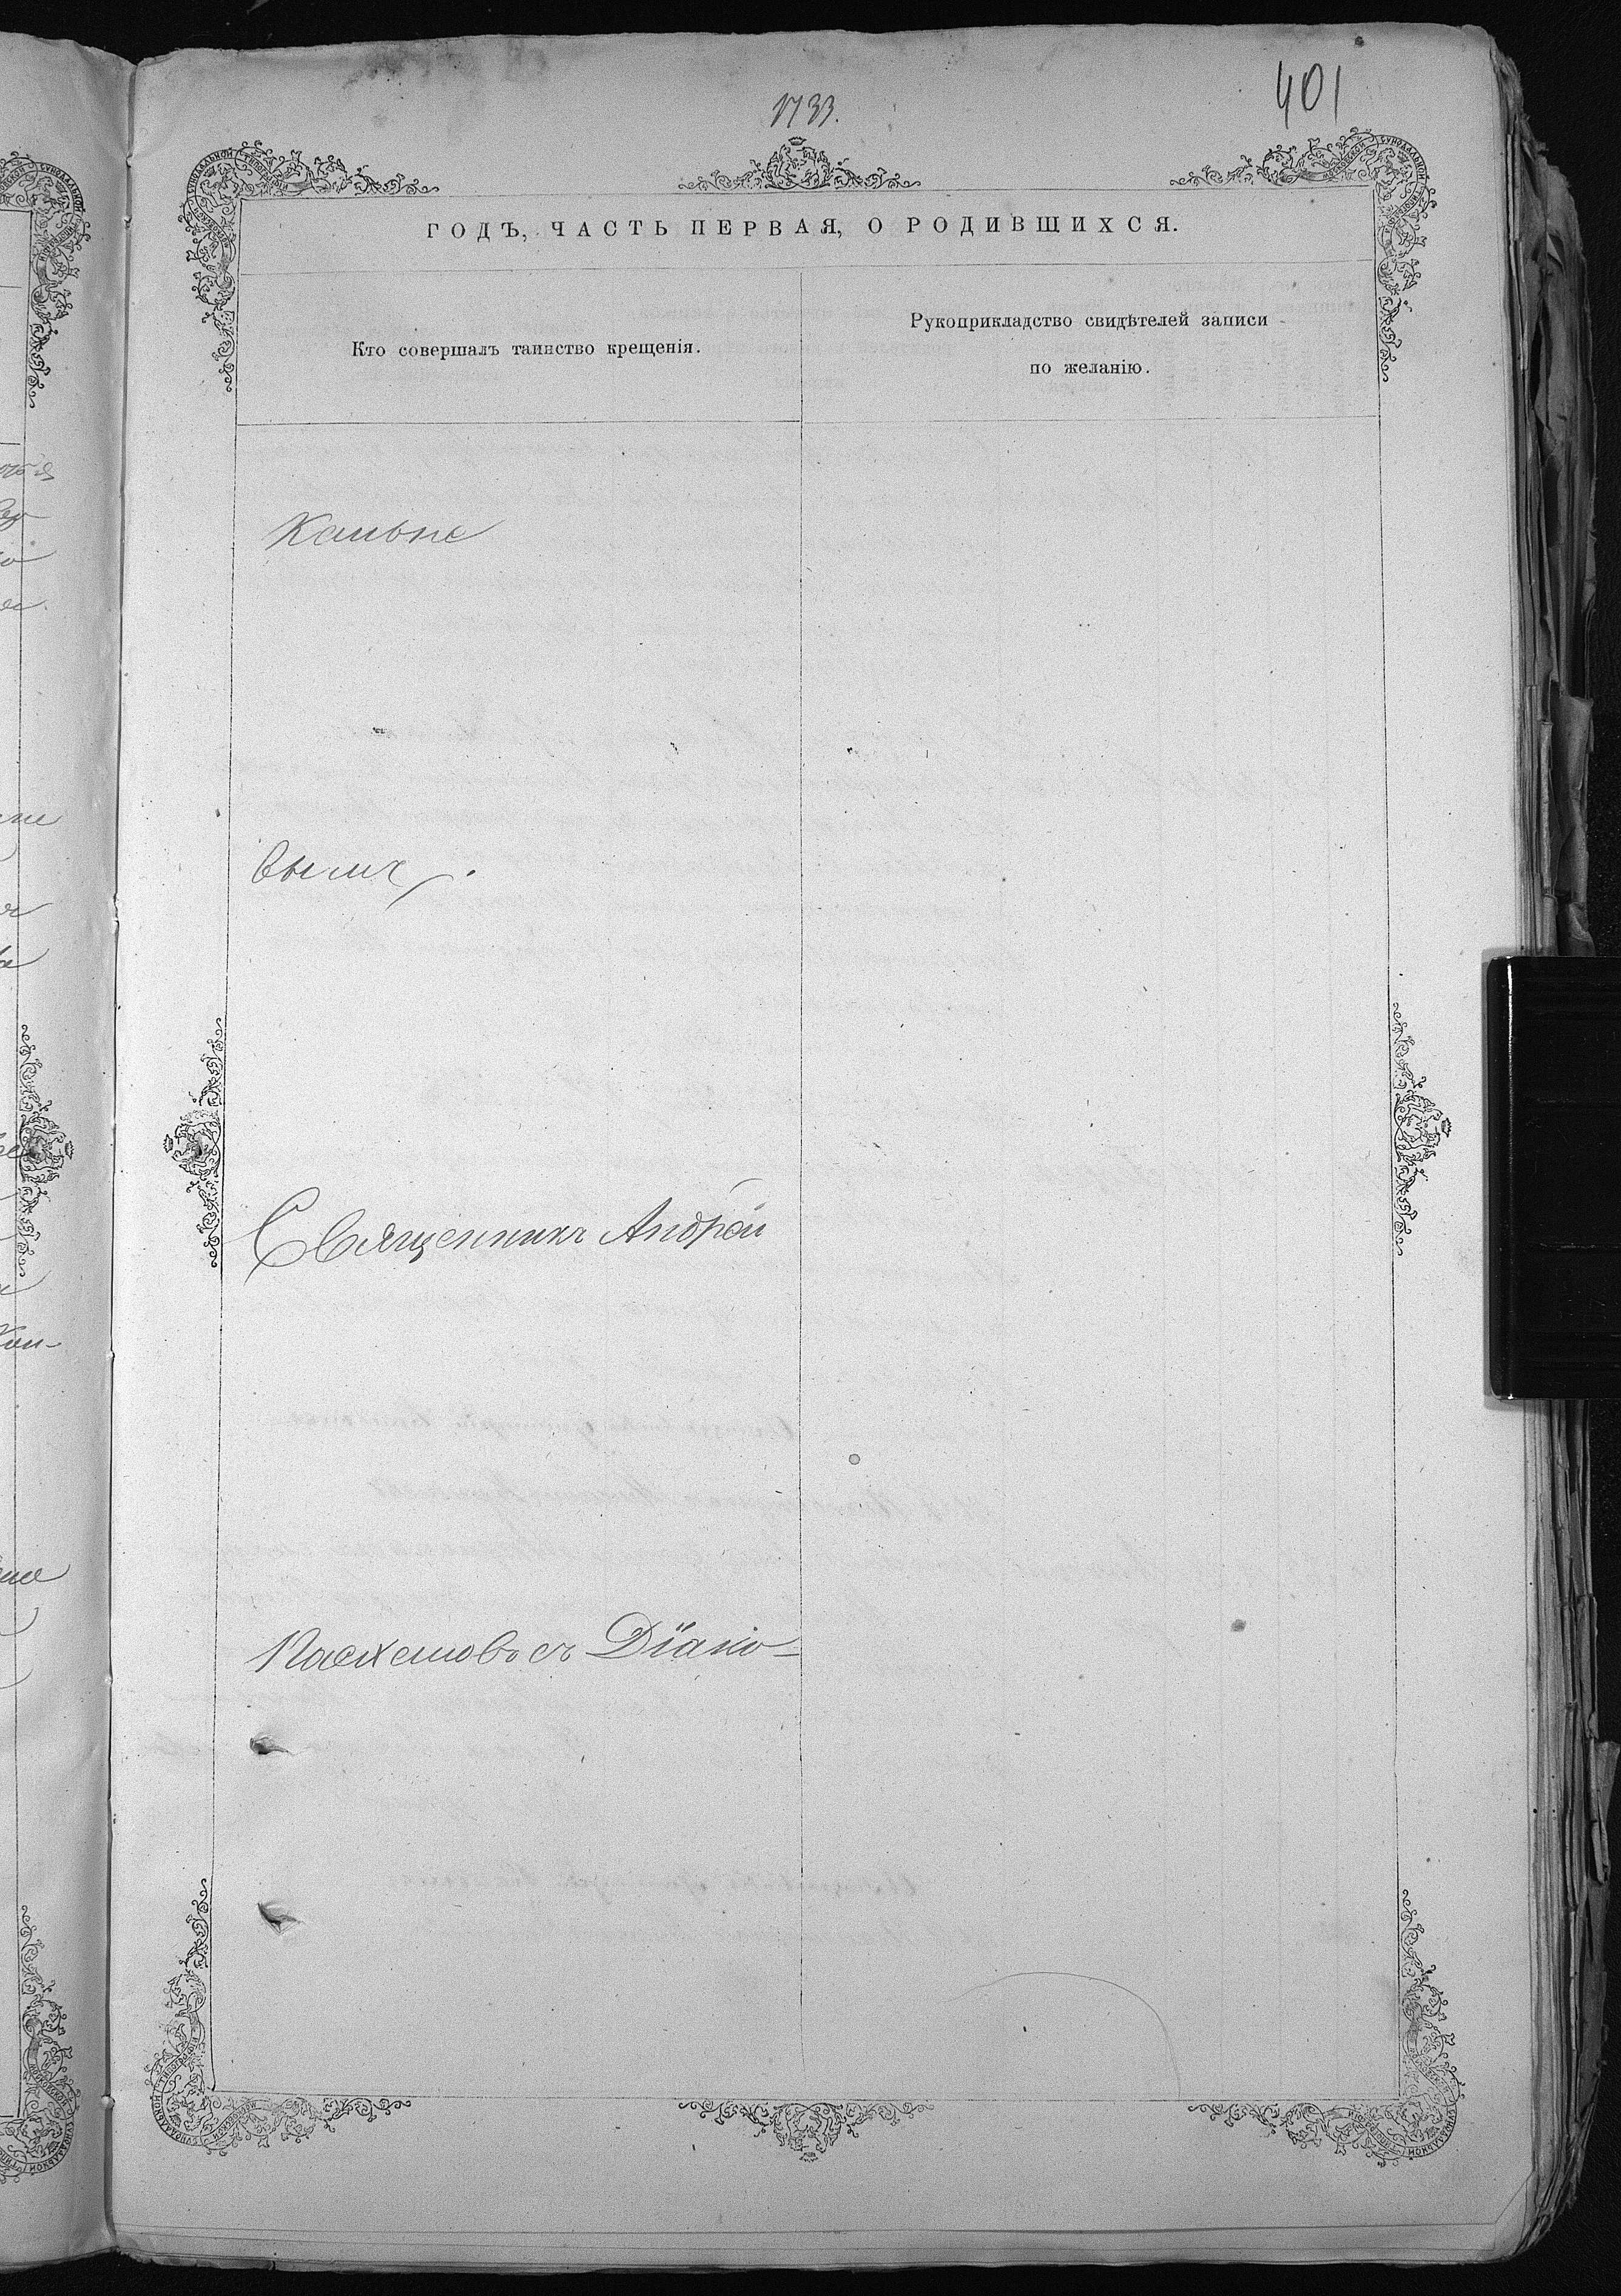 401
1733.
ГОДЪ, ЧАСТЬ ПЕРВАЯ, О РОДИВШИХСЯ.
Кто совершалъ таинство крещенія.
Рукоприкладство свидѣтелей записи
по желанію.
вымъ.
Священникъ Андрей
съ Діако-